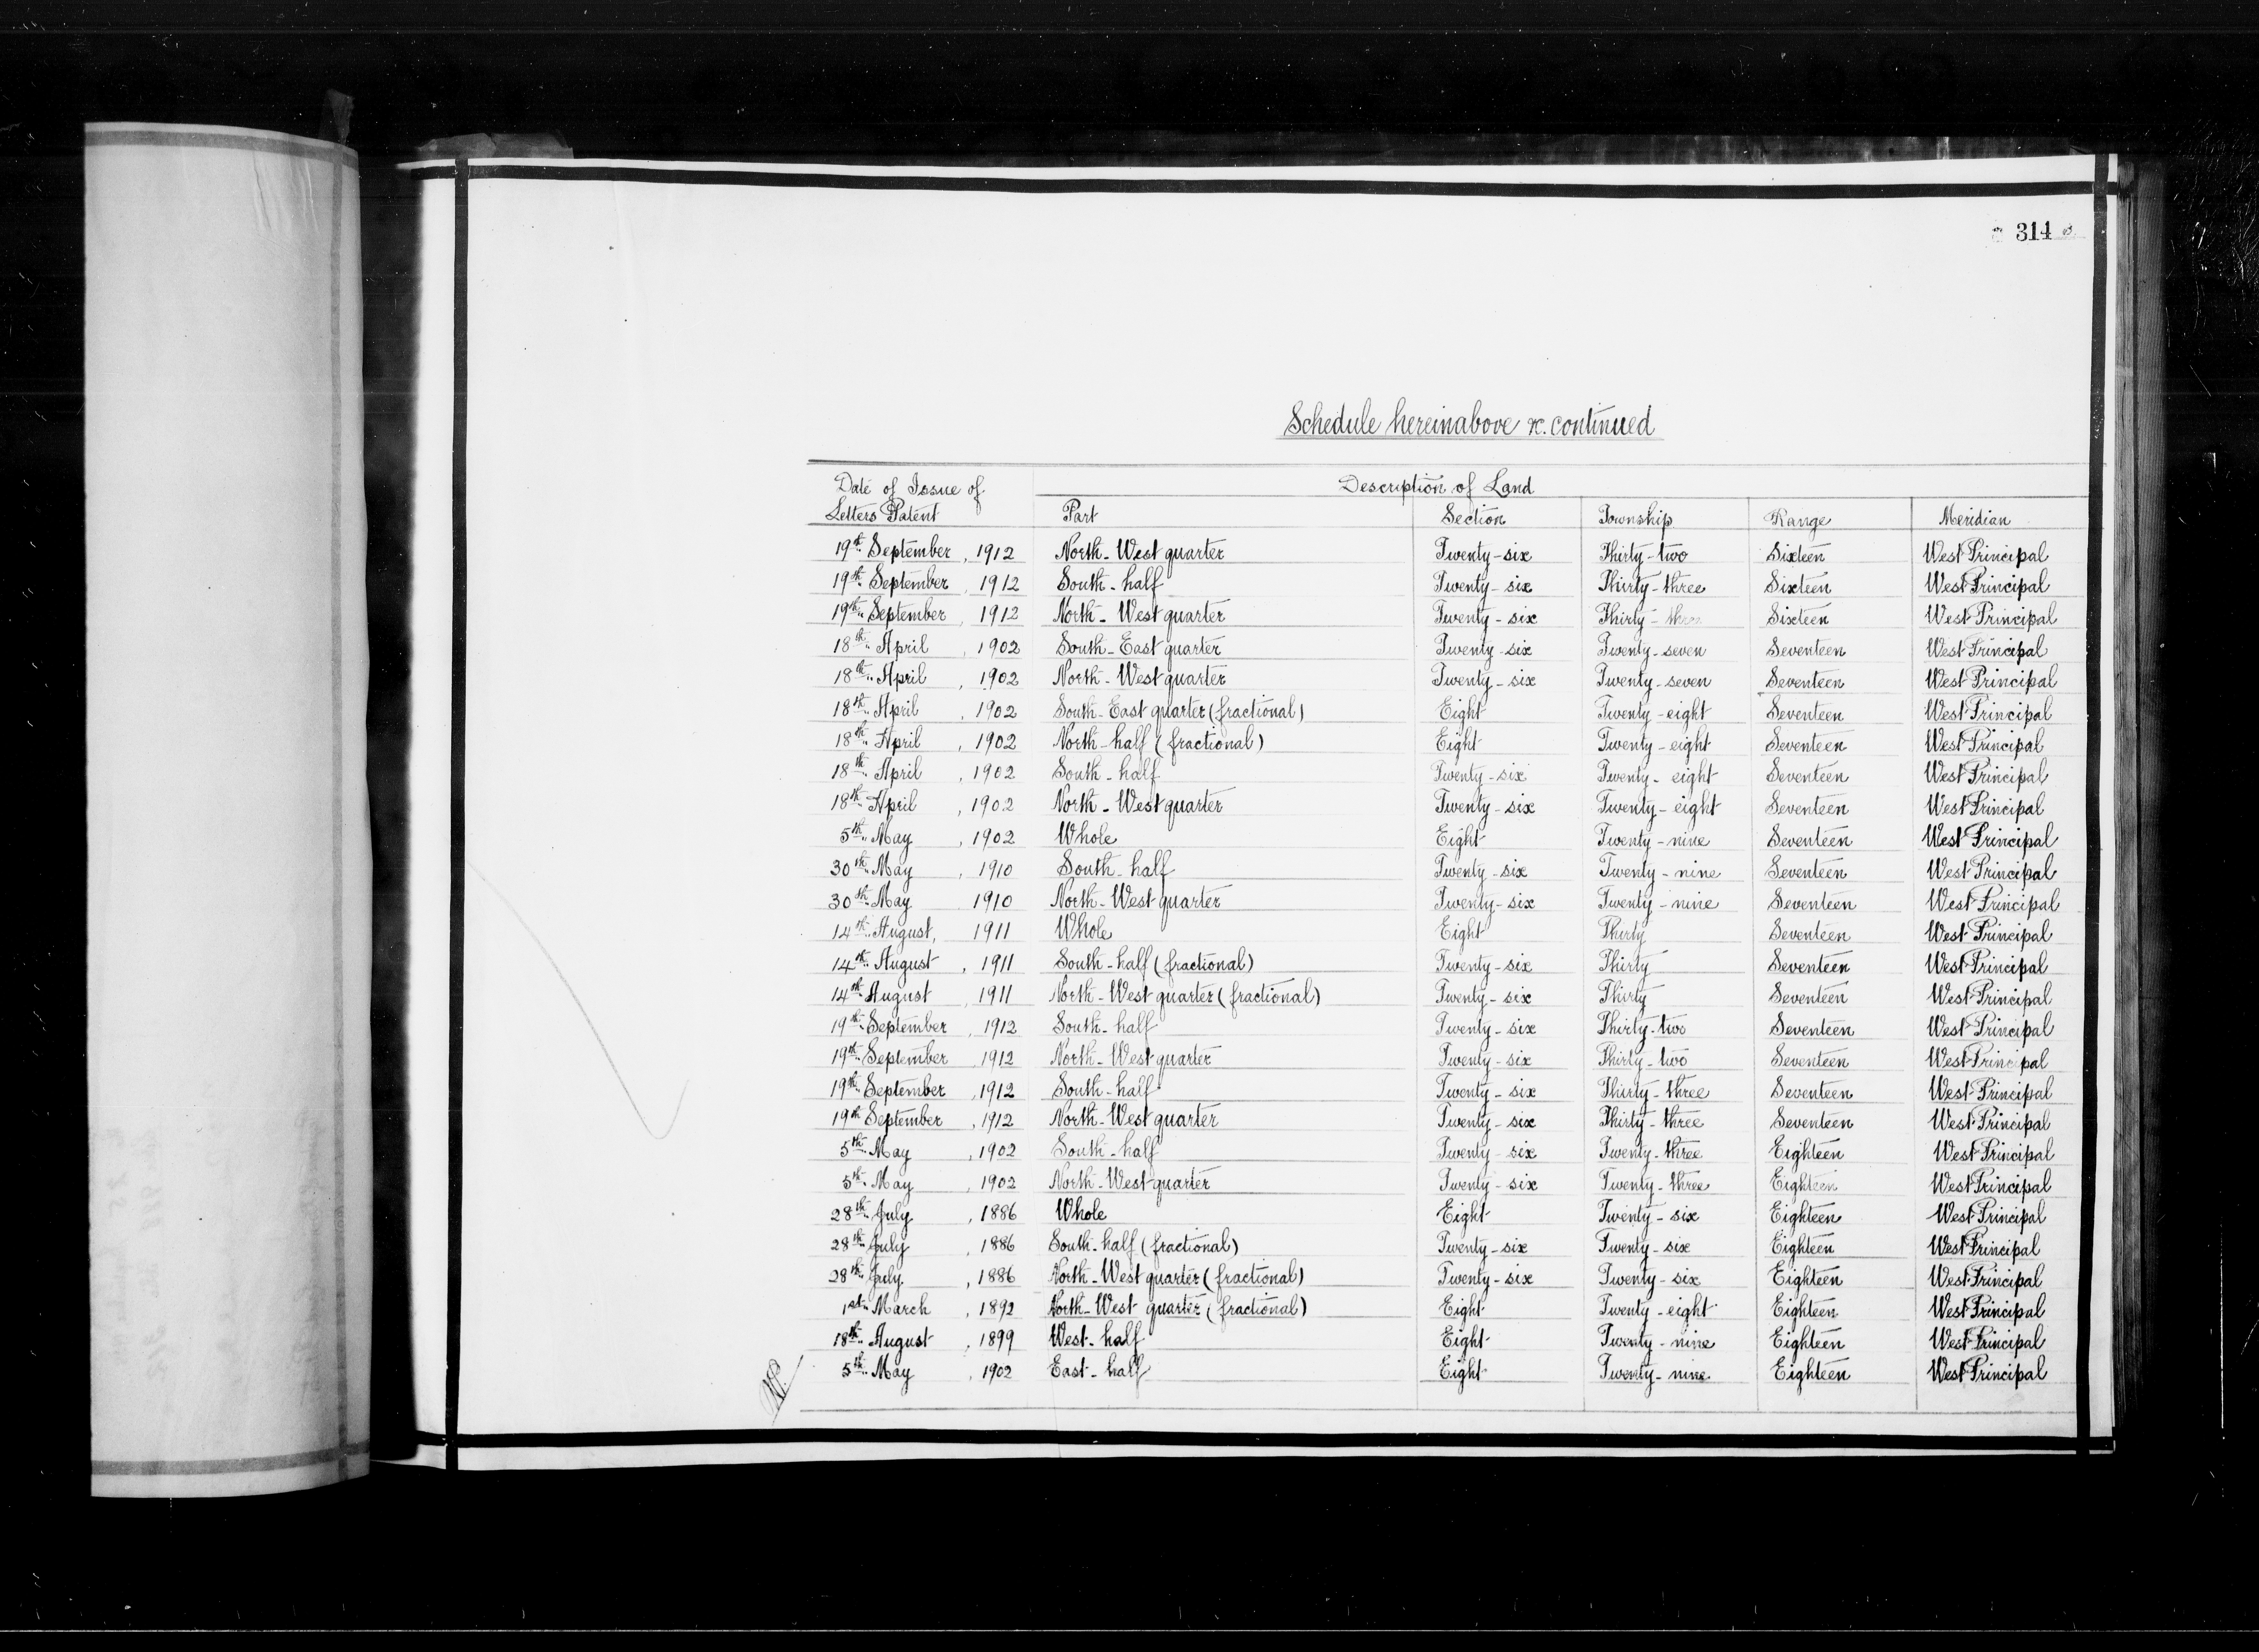 314
Schedule hereinabove &c. continued
Date of Issue of Letters Patent Description of Land
Part Section Township Range Meridian
19th September, 1912 North-West quarter Twenty-six Thirty-two Sixteen West Principal
19th September, 1912 South-half Twenty-six Thirty-three Sixteen West Principal
19th September, 1912 North-West quarter Twenty-six Thirty-three Sixteen West Principal
18th April, 1902 South-East quarter Twenty-six Twenty-seven Seventeen West Principal
18th April, 1902 North-West quarter Twenty-six Twenty-seven Seventeen West Principal
18th April, 1902 South-East quarter (fractional) Eight Twenty-eight Seventeen West Principal
18th April, 1902 North-half (fractional) Eight Twenty-eight Seventeen West Principal
18th April, 1902 South-half Twenty-six Twenty-eight Seventeen West Principal
18th April, 1902 North-West quarter Twenty-six Twenty-eight Seventeen West Principal
5th May, 1902 Whole Eight Twenty-nine Seventeen West Principal
30th May, 1910 South-half Twenty-six Twenty-nine Seventeen West Principal
30th May, 1910 North-West quarter Twenty-six Twenty-nine Seventeen West Principal
14th August, 1911 Whole Eight Thirty Seventeen West Principal
14th August, 1911 South-half (fractional) Twenty-six Thirty Seventeen West Principal
14th August, 1911 North-West quarter (fractional) Twenty-six Thirty Seventeen West Principal
19th September, 1912 South-half Twenty-six Thirty-two Seventeen West Principal
19th September, 1912 North-West quarter Twenty-six Thirty-two Seventeen West Principal
19th September, 1912 South-half Twenty-six Thirty-three Seventeen West Principal
19th September, 1912 North-West quarter Twenty-six Thirty-three Seventeen West Principal
5th May, 1902 South-half Twenty-six Twenty-three Eighteen West Principal
5th May, 1902 North-West quarter Twenty-six Twenty-three Eighteen West Principal
28th July, 1886 Whole Eight Twenty-six Eighteen West Principal
28th July, 1886 South-half (fractional) Twenty-six Twenty-six Eighteen West Principal
28th July, 1886 North-West quarter (fractional) Twenty-six Twenty-six Eighteen West Principal
1st March, 1892 North-West quarter (fractional) Eight Twenty-eight Eighteen West Principal
18th August, 1899 West-half Eight Twenty-nine Eighteen West Principal
5th May, 1902 East-half Eight Twenty-nine Eighteen West Principal